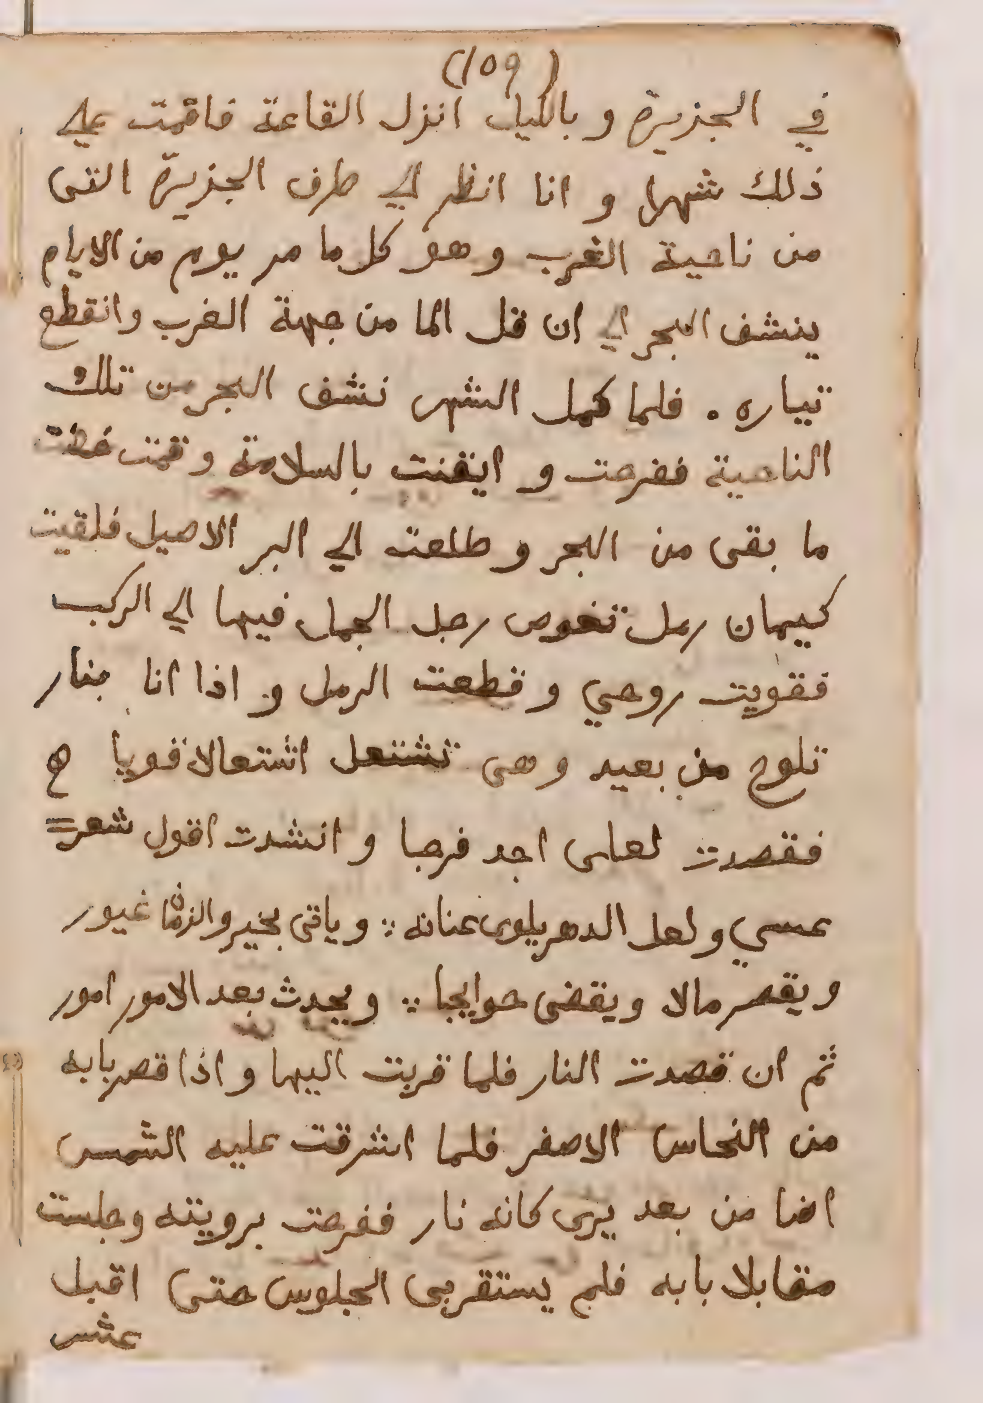 (١٥٩)
في الجزيرة و بالليل انزل القاعة فاقمت علي
ذلك شهرا و انا انظر الي طرف الجزيرة التى
من ناحية الغرب وهو كل ما مر يوم من الايام
ينشف البحر الي ان قل الما من جهة الغرب وانقطع
تياره . فلما كمل الشهر نشف البحر من تلك
الناحية ففرحت و ايقنت بالسلامة وقمت خضت
ما بقى من البحر و طلعت الي البر الاصيل فلقيت
كيمان رمل تغوص رجل الجمل فيها الي الركب
فقويت روحي و قطعت الرمل و اذا انا بنار
تلوح من بعيد وهى تشتعل اشتعالا قويا ه
فقصدت لعلى اجد فرجا و انشدت اقول شعر
عسي ولعل الدهر يلوى عنانه ؞ وياتى بخير والزمان غيور
ويقصر مالا ويقضى حوايجا ؞ ويحدث بعد الامور امور
ثم ان قصدت النار فلما قربت اليها و اذا قصر بابه
من النحاس الاصفر فلما اشرقت عليه الشمس
اضا من بعد يرى كانه نار ففرحت برويته وجلست
مقابلا بابه فلم يستقر بى الجلوس حتى اقبل
عشر